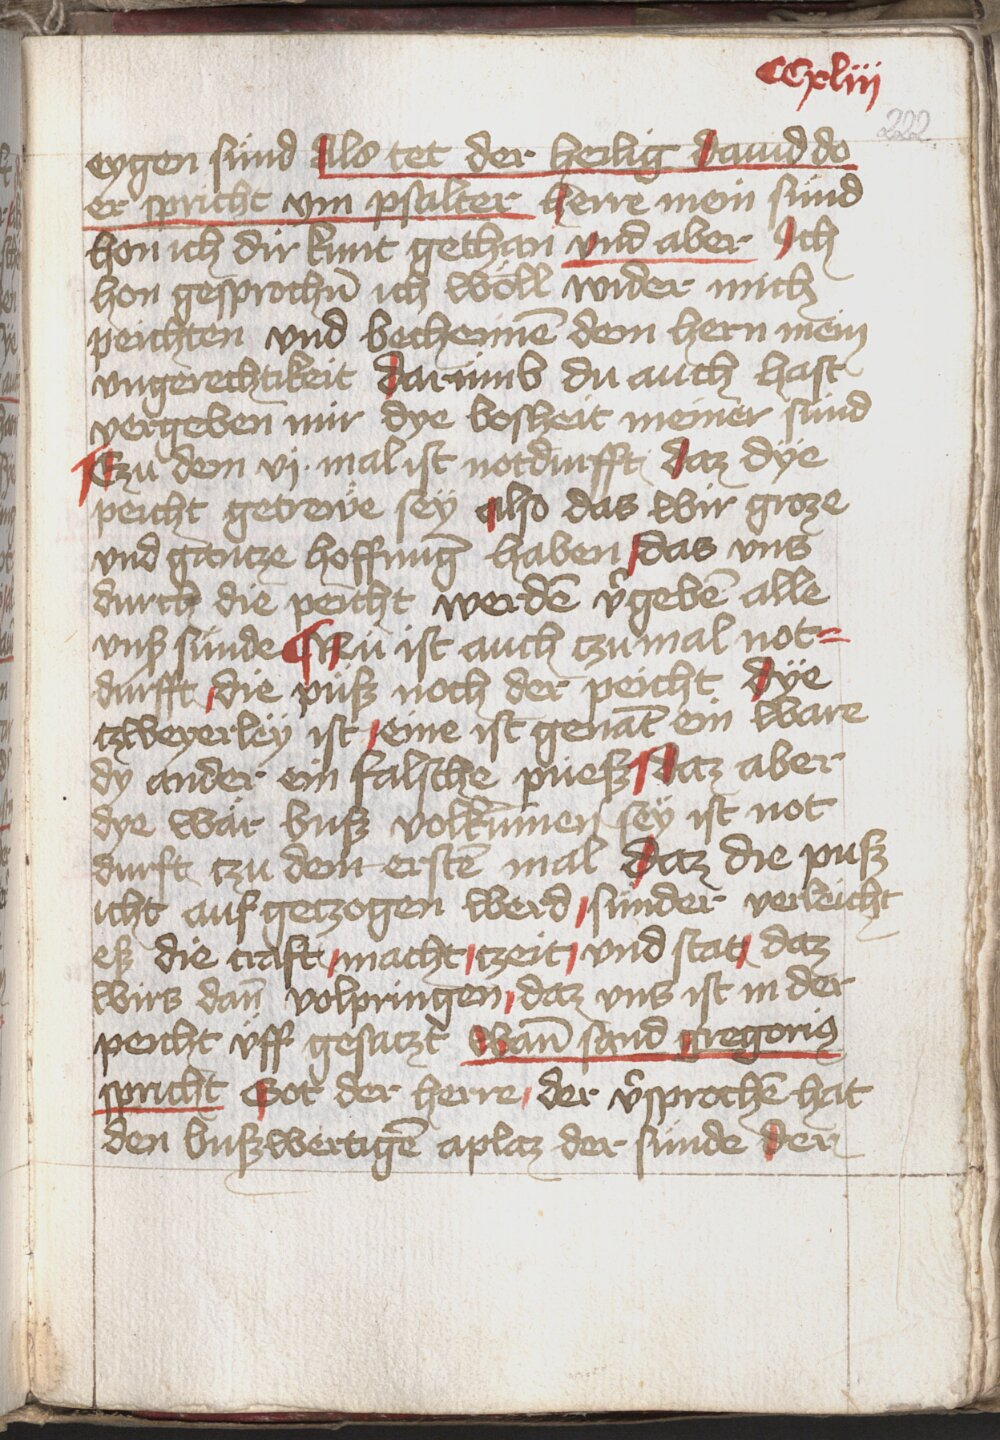 CCxliii
222
eygen sünd Also tet der heilig Dauid do
er spricht ym psalter Herre mein sünd
hon ich dir kunt gethan vnd aber Ich
hon gesprochn̄ ich wöll wider mich
peichten vnd bechennē dem hern mein
vngerechtikeit Darümb du auch hast
vergeben mir dye bosheit meiner sünd
Czu dem vj. mal ist notdurfft Daz dÿe
peicht getrewe seÿ Also das wir groze
vnd gantze hoffnūg haben das vns
durch die peicht werdē v̄gebē alle
vnß sünde ¶ Nu ist auch czumal not=
durfft die puß noch der peicht Dÿe
czweyerleÿ ist eine ist genāt ein ware
dy ander ein falsche pueß Daz aber
dye war buß volkūmen seÿ ist not
durft czu dem erstē mal Daz die puß
icht auf getzogen werd sünder verleicht
eß die craft macht czeit vnd stat daz
wirs dan̄ volpringen daz vns ist in der
peicht üff gesaczt Wan̄ sand gregorius
spricht Got der herre der v̄sprochē hat
den bußwertigē aplaz der sünde Der